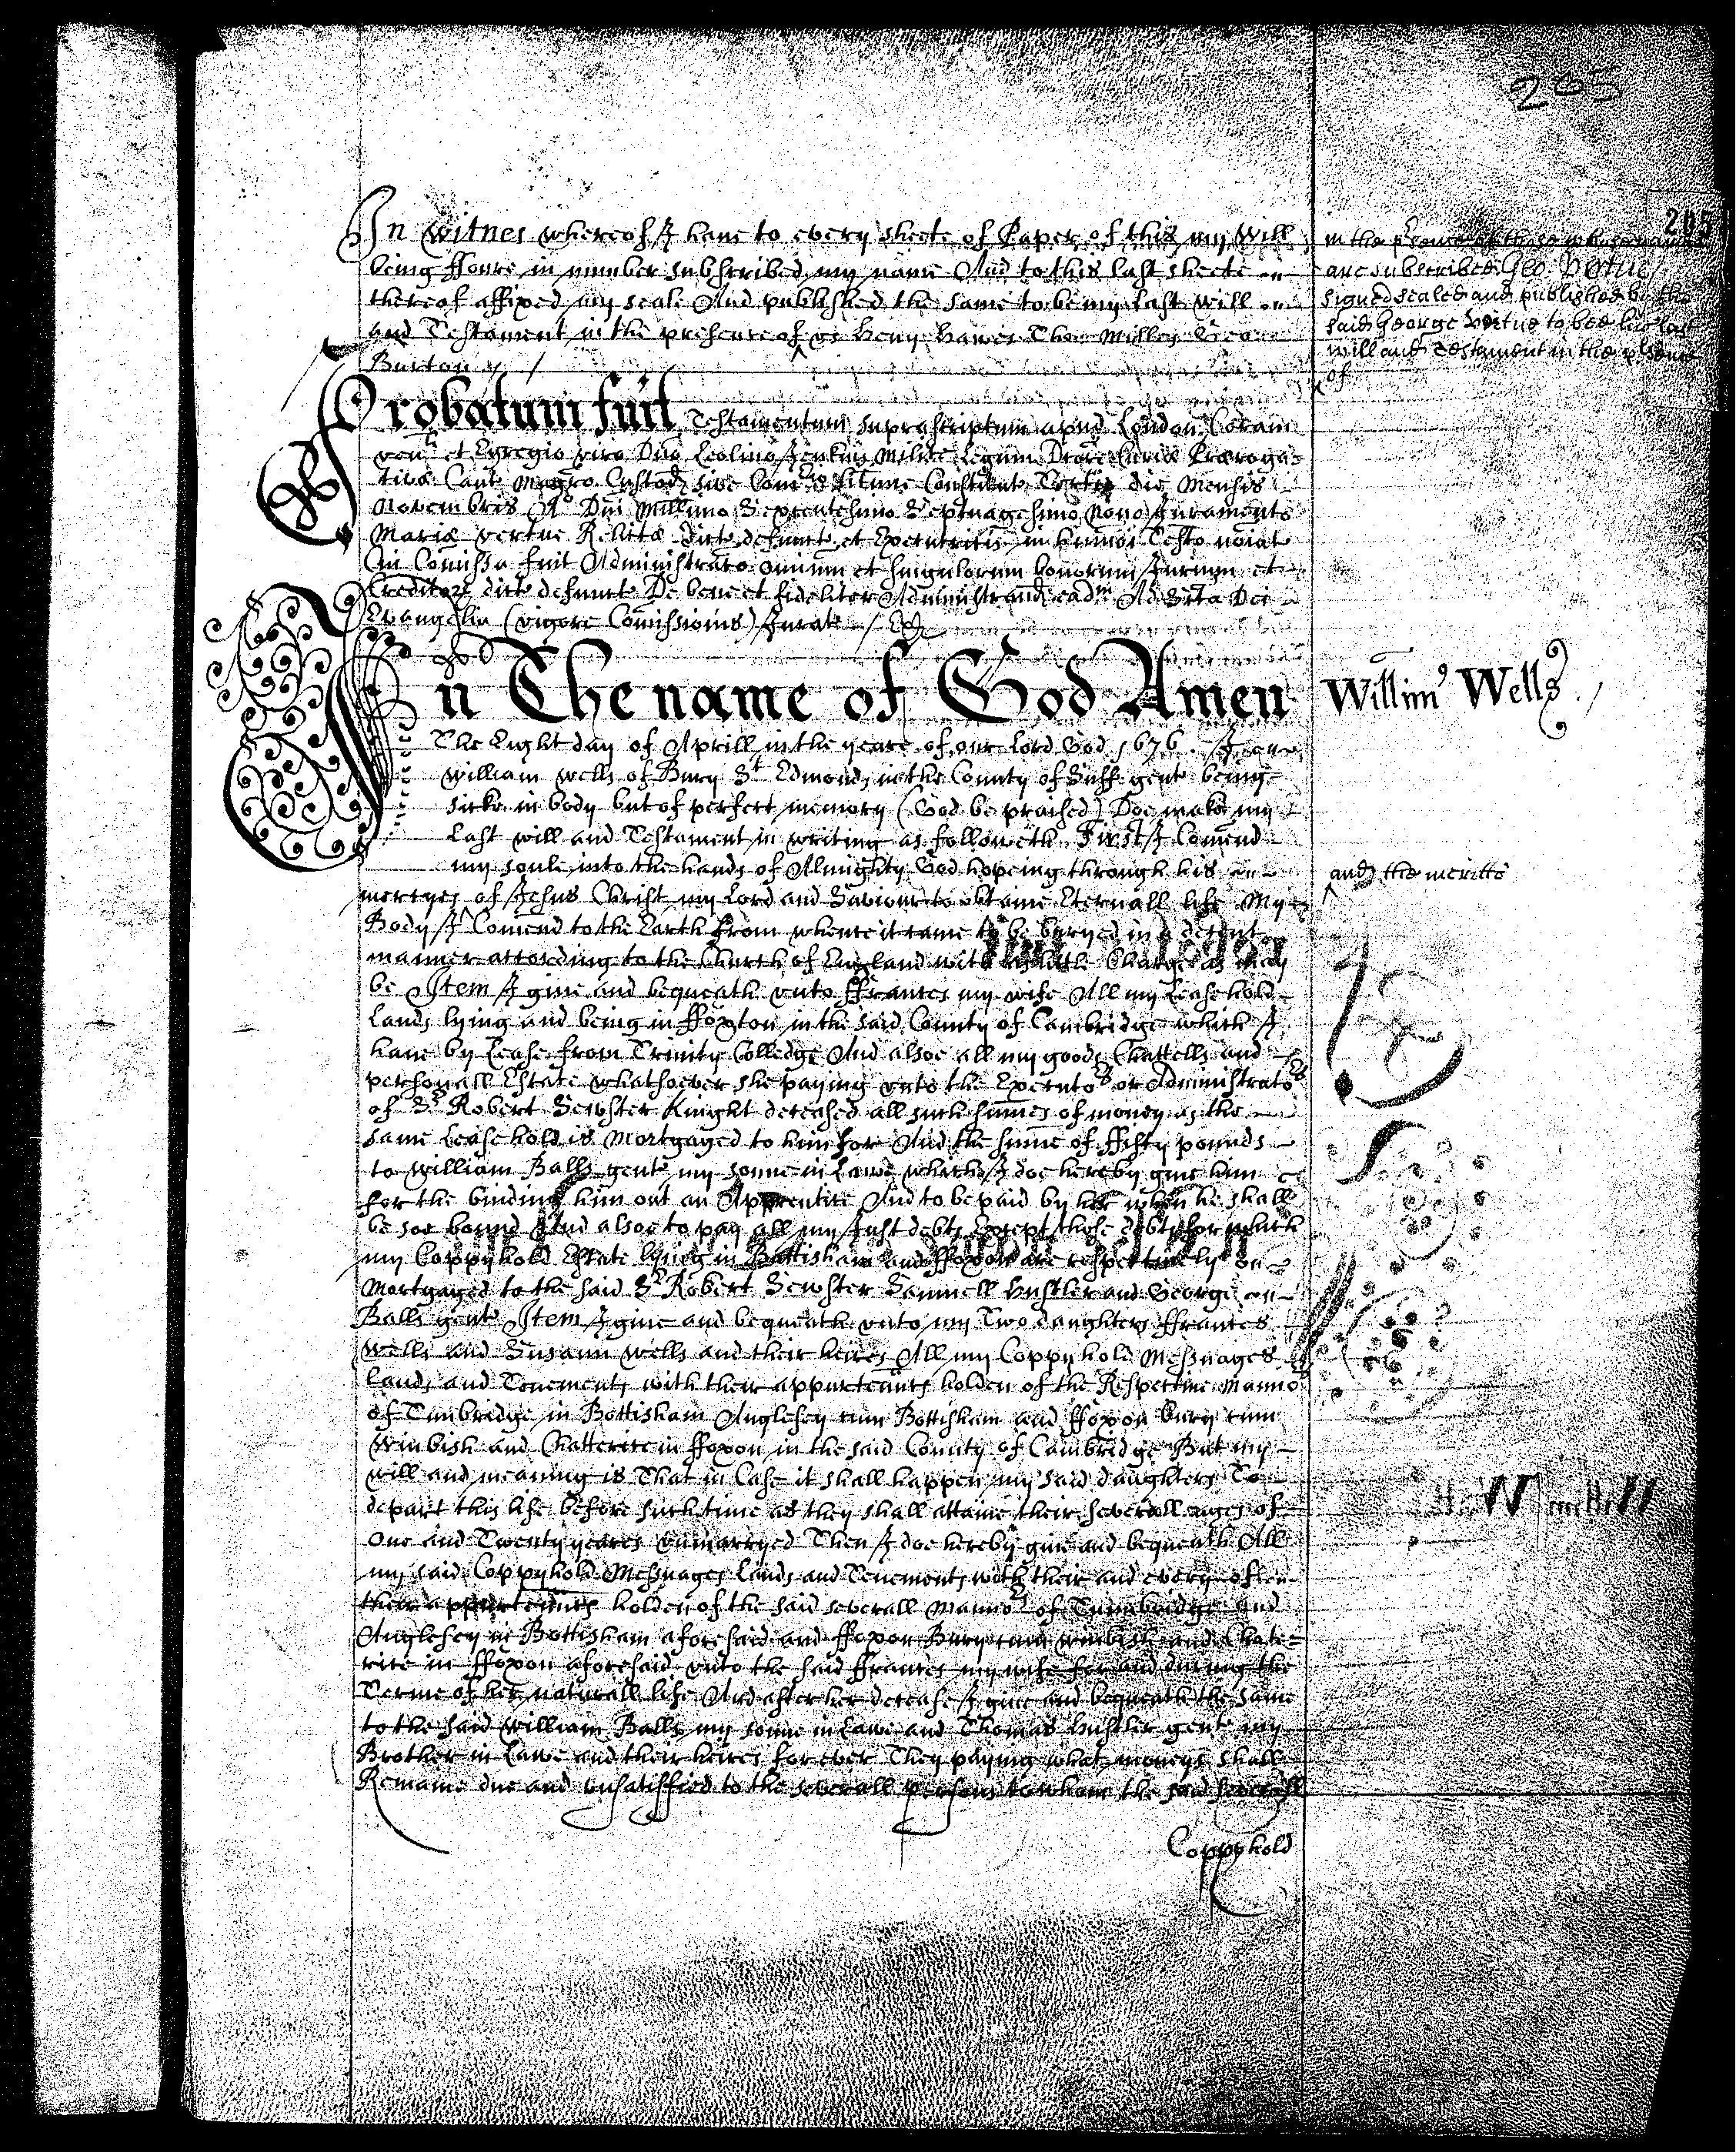 205
205
In witnes whereof I have to every sheete of Paper of this my will
being ffoure in number subscribed my name And to this last sheete
thereof affixed my seale And published the same to be my last will
and Testament in the presence of Heny Hawes Tho: Milles Geo
Burton
in the presence of those whose names
are subscribed Geo: Vertue
signed sealed and published by the
said George Vertue to bee his last
will and testament in the psence
of
Probatum fuit Testamentum suprascriptum apud London Coram
ven et Egregio viro Dno Leolino Jenkins Milite Legum Dtore Curiæ Præroga
tivæ Cant Magro Custod sive Comrio ltime Constitut die Mensis
Novembris Ao Dni Millimo Sexcentesimo Septuagesimo Nono Juramento
Mariæ Vertue Relictæ dicti defuncti et Executricis in hmoi Testo noiat
Cui Comissa fuit Administratio omnium et singulorum bonorum Jurium et
Creditorx dicti defuncti De bene et fideliter Administrand eadm Ad Scta Dei
Evangelia (vigore Comissionis) Jurat / Ex
In The name of God Amen
Willim Wells
The Eight day of Aprill in the yeare of our Lord God 1676. I
William Wells of Bury St Edmonds in the County of Suff gent being
sicke in body but of perfect memory (God be praised) Doe make my
Last will and Testament in writing as followeth First I Comend
my soule into the hands of Almighty God hopeing through his
and the meritts
mercyes of Jesus Christ my Lord and Saviour to obtaine Eternall life My
Body I Comend to the Earth from whence it came to be buryed in a decent
manner according to the Church of England with as little Charge as may
be Item I give and bequeath unto ffrances my wife All my Leasehold
Lands lying and being in ffoxton in the said County of Cambridge which I
have by Lease from Trinity Colledge And alsoe all my goods Chattells and
personall Estate whatsoever she paying unto the Executors or Administrators
of Sr Robert Sewster Knight deceased all such summes of money as the
same Leasehold is Mortgaged to him for And the summe of ffifty pounds
to William Balls gent my sonne in Lawe which I doe hereby give him
for the binding him out an Apprentice And to be paid by her when he shall
be soe bound And alsoe to pay all my Just debts Except those debts for which
my Coppyhold Estate lying in Bottisham and ffoxon are respectively
Mortgaged to the said Sr Robert Sewster Samuell Hustler and George
Balls gent Item I give and bequeath unto my Two daughters ffrances
Wells and Susann Wells and their heires All my Coppyhold Messuages
Lands and Tenements with their appurtennts holden of the Respective Mannors
of Tunbridge in Bottisham Anglesey cum Bottisham and ffoxon Bury cum
Winbish and Chatterice in ffoxon in the said County of Cambridge But my
will and meaning is That in Case it shall happen my said daughters To
depart this life before such time as they shall attaine their severall ages of
One and Twenty yeares unmarryed Then I doe hereby give and bequeath All
my said Coppyhold Messuages Lands and Tenements with their and every of
their appurtennts holden of the said severall Mannors of Tunnbridge and
Anglesey in Bottisham aforesaid and ffoxon Bury cum Winbish and Chate=
rice in ffoxon aforesaid unto the said ffrances my wife for and during the
Terme of her naturall life And after her decease I give and bequeath the same
to the said William Balls my sonne in Lawe and Thomas Hustler gent my
Brother in Lawe and their heires for ever They paying what moneys shall
Remaine due and unsatisffied to the severall persons to whom the said severall
Coppyhold